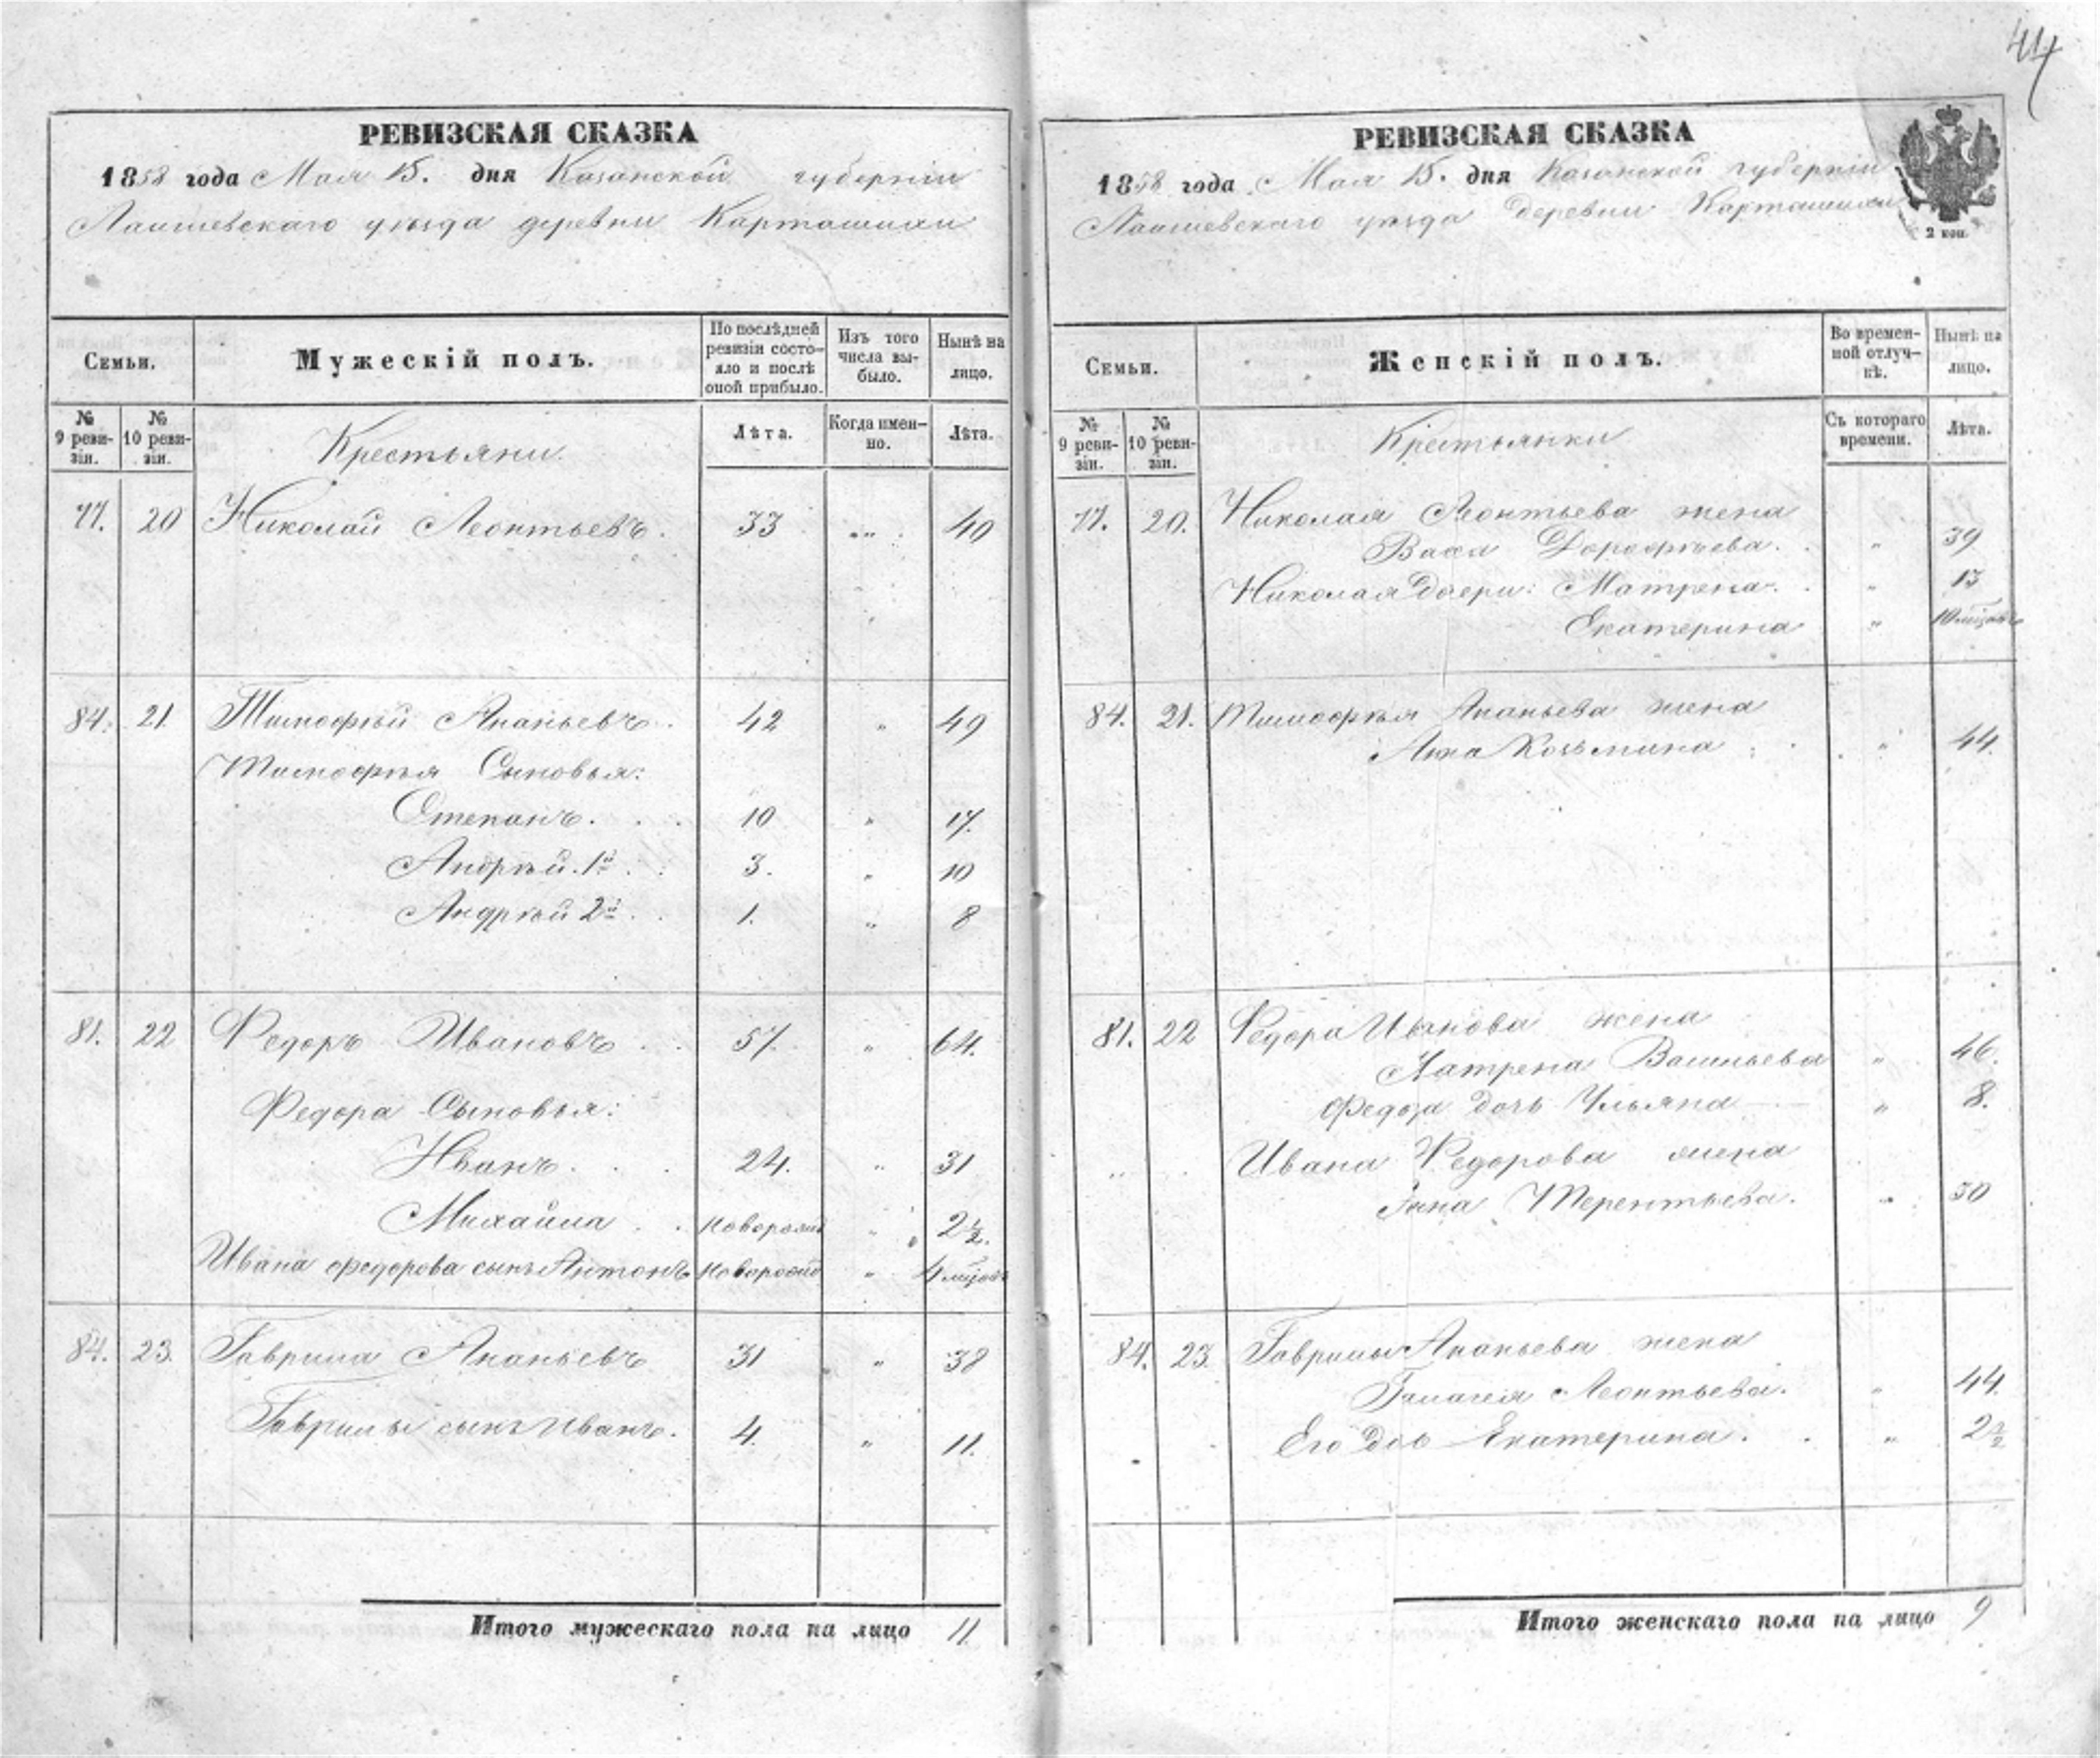 44
РЕВИЗСКАЯ СКАЗКА
1858 года Мая 15. дня Казанской губернии
Лаишевскаго уѣзда деревни Карташихи
Семьи.
Мужескій полъ.
По послѣдней ревизіи состояло и послѣ оной прибыло.
Изъ того числа выбыло.
Нынѣ на лицо.
№ 9 ревизіи.
№ 10 ревизіи.
Крестьяни
Лѣта.
Когда именно.
Лѣта.
77. 20 Николай Леонтьевъ. 33 „„ 40
84. 21. Тимофѣй Ананьевъ. 42 „ 49
Тимофѣя Сыновья:
Степанъ. 10 „ 17.
Андрѣй. 1й 3. „ 10
Андрѣй 2й 1. „ 8
81. 22 Федоръ Ивановъ 57. „ 64.
Федора Сыновья:
Иванъ. 24. „ 31
Михайла новорожд „ 2½.
Ивана федорова сынъ Антонъ новорожд „ 4 мѣсяц
84. 23. Гаврила Ананьевъ 31 „ 38
Гаврилы сынъ Иванъ. 4. „ 11.
Итого мужескаго пола на лицо 11.
РЕВИЗСКАЯ СКАЗКА
1858 года Мая 15. дня Казанской губерніи
Лаишевскаго уѣзда деревни Карташихи
2 коп.
Семьи.
Женскій полъ.
Во временной отлучкѣ.
Нынѣ на лицо.
№ 9 ревизіи.
№ 10 ревизіи.
Крестьянки
Съ котораго времени.
Лѣта.
77. 20. Николая Леонтьева жена
Васса Дорофѣева. „ 39
Николая Дочери: Матрена. „ 13
Екатерина „ 10 мѣсяц
84. 21. Тимофѣя Ананьева жена
Анна Козьмина „ 44.
81. 22 Федора Иванова жена
Матрена Васильева „ 46.
Федора дочь Ульяна „ 8.
„ Ивана Федорова жена
Анна Терентьева. „ 30
84. 23. Гаврилы Ананьева жена
Леонтьева. „ 44.
Его дочь Екатерина. „ 2½
Итого женскаго пола на лицо 9